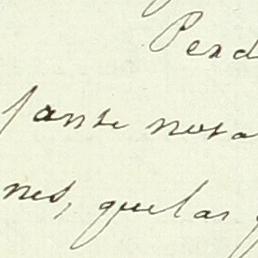 Perd
sante nota
nes, quelas